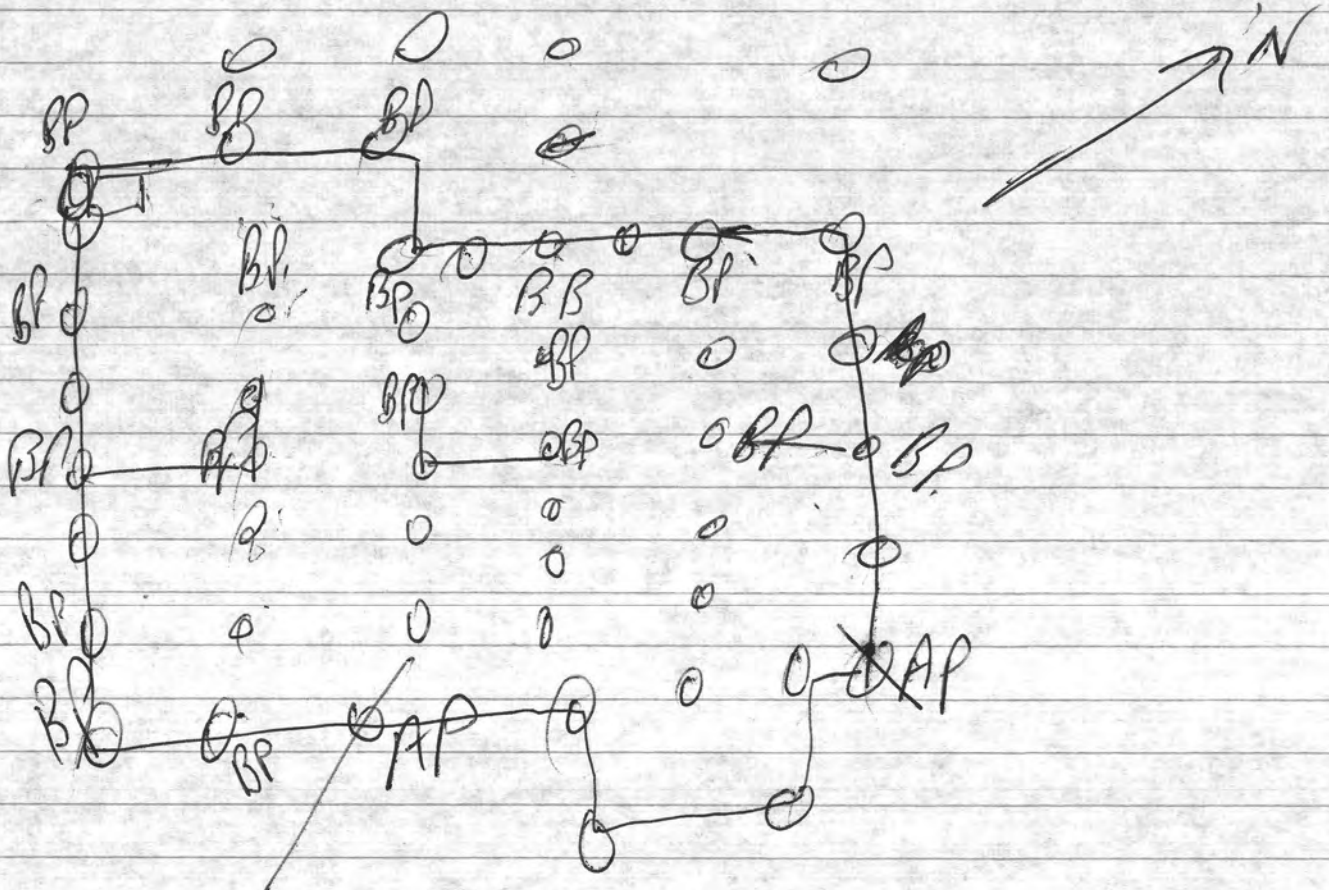 N
BP BP BP
BP. BP BB BP BP
BP
BP
BP
BP BP BP BP
BP
BP AP
BP AP